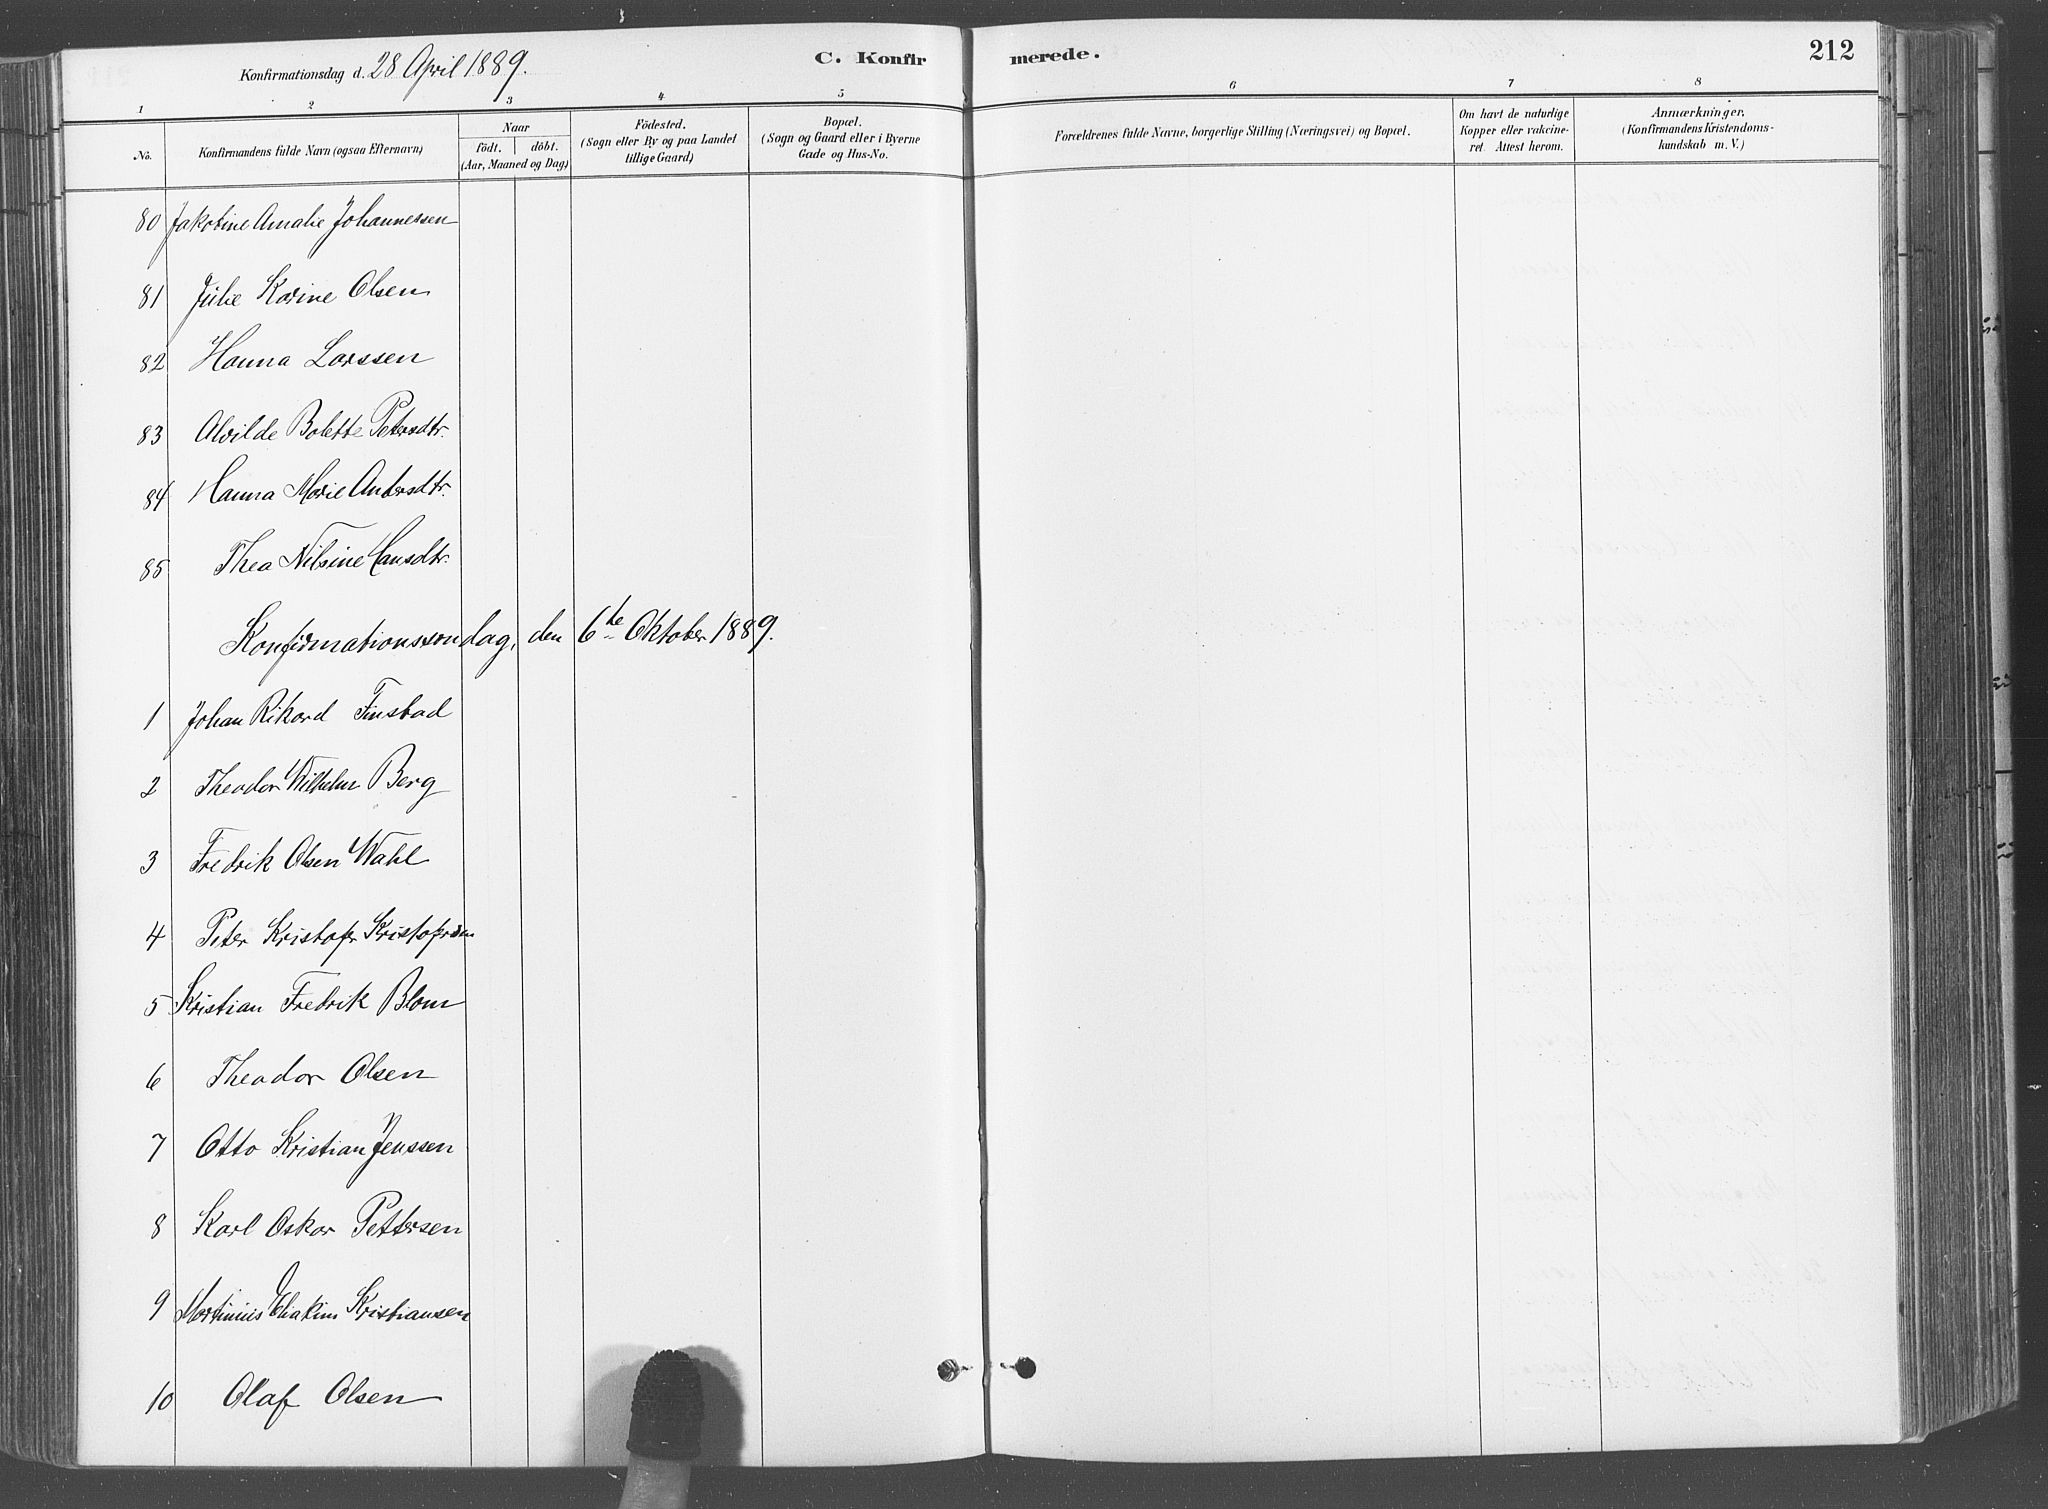 Konfirmationsdag d. 28 April 1889.
C. Konfir
merede.
212
1 2 3 4 5 6 7 8
No.
Konfirmandens fulde Navn (ogsaa Efternavn)
Naar
födt. döbt.
(Aar, Maaned og Dag)
Födested.
(Sogn eller By og paa Landet
tillige Gaard)
Bopæl.
(Sogn og Gaard eller i Byerne
Gade og Hus-No.
Forældrenes fulde Navne, borgerlige Stilling (Næringsvei) og Bopæl.
Om havt de naturlige
Kopper eller vakcine-
ret. Attest herom.
Anmærkninger.
(Konfirmandens Kristendoms-
kundskab m. V.)
80 Jakobine Amalie Johannessen
81 Julie Karine Olsen
82 Hanna Larssen
83 Alvilde Bolette Petersdtr.
84 Hanna Marie Andersdtr.
85 Thea Nilsine Hansdtr.
Konfirmationssondag, den 6te Oktober 1889.
1 Johan Rikard Finstad
2 Theodor Wilhelm Berg
3 Fredrik Olsen Wahl
4 Peter Kristofer Kristofersen
5 Kristian Fredrik Blom
6 Theodor Olsen
7 Otto Kristian Jenssen
8 Karl Oskar Pettersen
9 Martinius Kristiansen
10 Olaf Olsen